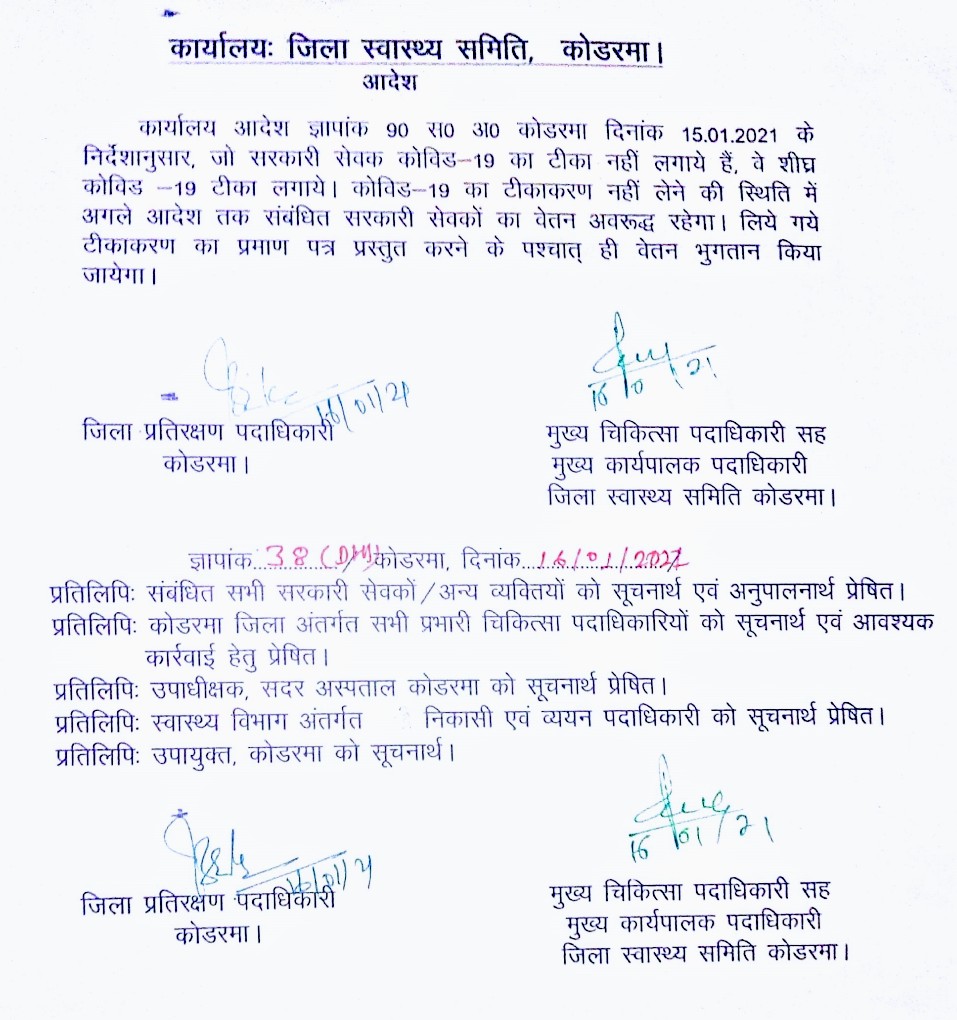 कार्यालयः जिला स्वास्थ्य समिति, कोडरमा।
आदेश
कार्यालय आदेश ज्ञापांक 90 स0 अ0 कोडरमा दिनांक 15.01.2021 के
निर्देशानुसार, जो सरकारी सेवक कोविड–19 का टीका नहीं लगाये हैं, वे शीघ्र
कोविड –19 टीका लगाये। कोविड–19 का टीकाकरण नहीं लेने की स्थिति में
अगले आदेश तक संबंधित सरकारी सेवकों का वेतन अवरूद्ध रहेगा। लिये गये
टीकाकरण का प्रमाण पत्र प्रस्तुत करने के पश्चात् ही वेतन भुगतान किया
जायेगा।
16/01/21
16/01/21
जिला प्रतिरक्षण पदाधिकारी
कोडरमा।
मुख्य चिकित्सा पदाधिकारी सह
मुख्य कार्यपालक पदाधिकारी
जिला स्वास्थ्य समिति कोडरमा।
ज्ञापांक...38 कोडरमा, दिनांक...16/01/2021
प्रतिलिपिः संबंधित सभी सरकारी सेवकों/अन्य व्यक्तियों को सूचनार्थ एवं अनुपालनार्थ प्रेषित।
प्रतिलिपिः कोडरमा जिला अंतर्गत सभी प्रभारी चिकित्सा पदाधिकारियों को सूचनार्थ एवं आवश्यक
कार्रवाई हेतु प्रेषित।
प्रतिलिपिः उपाधीक्षक, सदर अस्पताल कोडरमा को सूचनार्थ प्रेषित।
प्रतिलिपिः स्वास्थ्य विभाग अंतर्गत निकासी एवं व्ययन पदाधिकारी को सूचनार्थ प्रेषित।
प्रतिलिपिः उपायुक्त, कोडरमा को सूचनार्थ।
16/01/21
16/01/21
जिला प्रतिरक्षण पदाधिकारी
कोडरमा।
मुख्य चिकित्सा पदाधिकारी सह
मुख्य कार्यपालक पदाधिकारी
जिला स्वास्थ्य समिति कोडरमा।